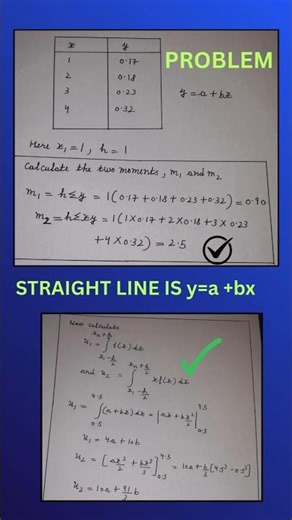 x y
1 0.17
2 0.18
3 0.23
4 0.32
PROBLEM
y = a + bx
Here x₁ = 1, h = 1
Calculate the two moments, m₁ and m₂
m₁ = hΣy = 1(0.17 + 0.18 + 0.23 + 0.32) = 0.90
m₂ = hΣxy = 1(1×0.17 + 2×0.18 + 3×0.23
+ 4×0.32) = 2.5
STRAIGHT LINE IS y=a +bx
Now calculate
μ₁ = ∫ f(x) dx
xₙ + h/2
x₁ - h/2
and μ₂ = ∫ x f(x) dx
xₙ + h/2
x₁ - h/2
μ₁ = ∫ (a + bx) dx = |ax + bx²/2|
4.5
0.5
4.5
0.5
μ₁ = 4a + 10b
μ₂ = [ax²/2 + bx³/3] = 10a + b/3 [4.5³ - 0.5³]
4.5
0.5
μ₂ = 10a + 91/3 b